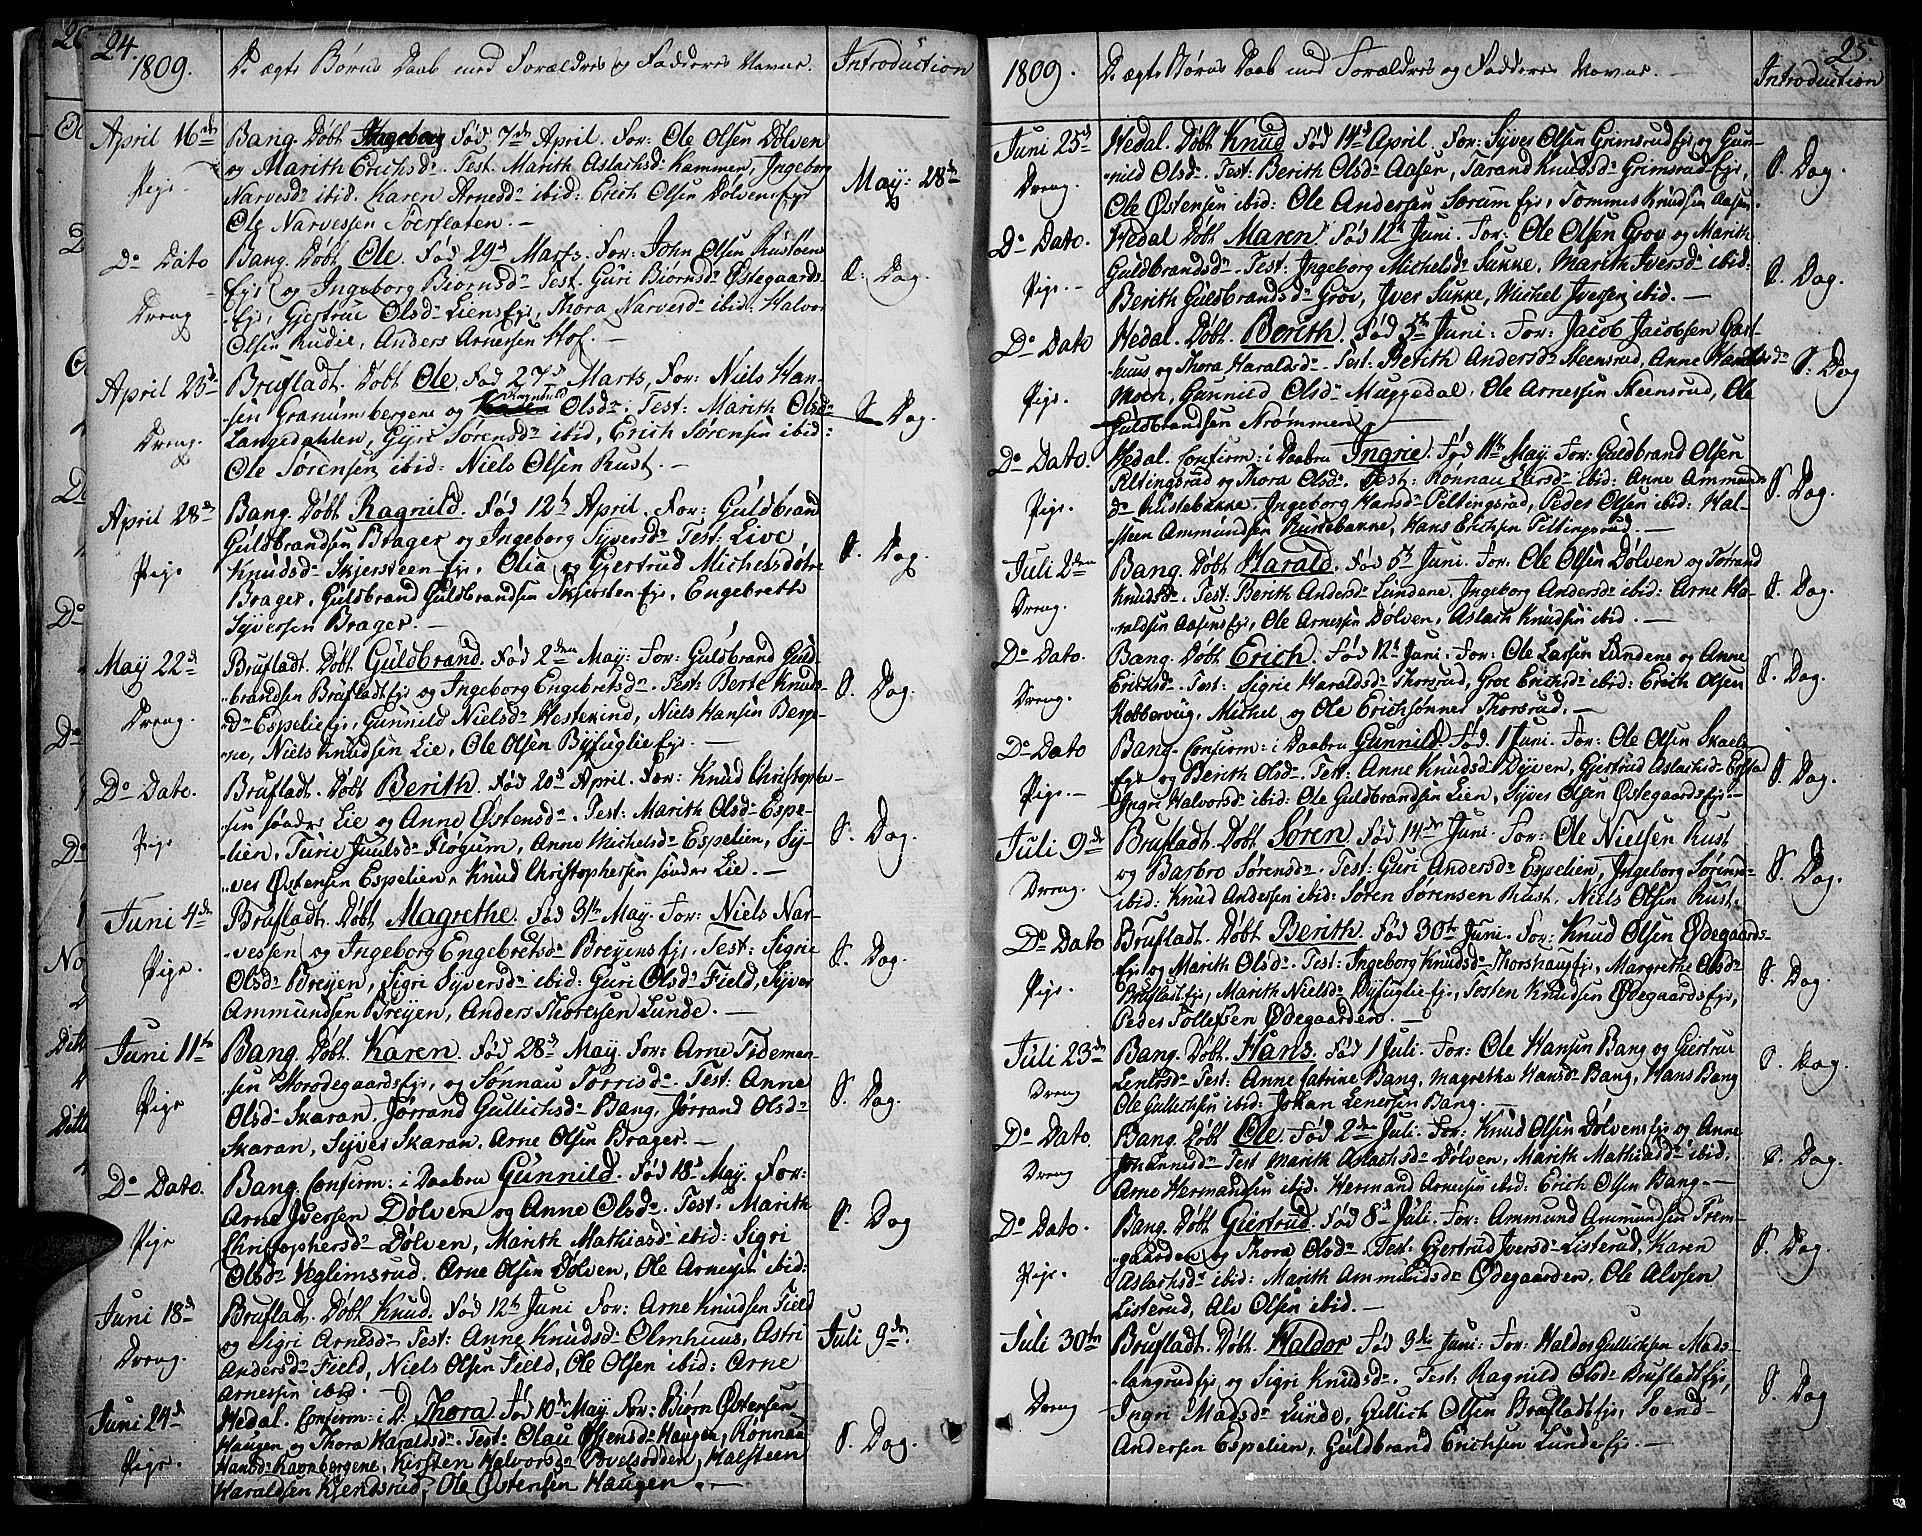 24.
1809. De ægte Børns Daab med Forældres og Fadderes Navne. Introduction
April 16de Bang. Døbt Ingeborg Fød 7de April. For: Ole Olsen Dølven
Pige og Marith Erichsd. Test. Marith Aslachsd. Hammer, Ingeborg
Narvesd. ibid. Karen Arnesd. ibid: Erich Olsen Dølvenseje May: 28de
Ole Narvessen Toerflaten. —
Do Dato Bang. Døbt Ole. Fød 29de Marts. For: John Olsen Rustøen
Eje og Ingeborg Biornsd. Test. Guri Biørnsd. Østegaards- S: Dag.
Dreng Eje, Giertrue Olsd. Liens Eje, Thora Narvesd. ibid: Halvor
Olsen Rudie, Anders Arnesen Hof. —
April 23de Brufladt. Døbt Ole. Fød 27de Marts, For: Niels Han-
sen Granumbergene og Ragnild Olsd. Test: Marith Olsd. S. Dag.
Dreng. Langedahlen, Gyri Sørensd. ibid, Erich Sørensen ibid:
Ole Sørensen ibid: Niels Olsen Rust. —
April 28de Bang. Døbt Ragnild. Fød 12te April. For: Guldbrand
Guldbrandsen Brager og Ingeborg Syversd. Test: Live S. Dag.
Pige Knudsd. Skjersteen Eje, Olia og Gjertrud Michelsdøtre
Brager, Guldbrand Guldbrandsen Skjersten Eje, Engebrett
Syversen Brager. —
May 22de Brufladt. Døbt Guldbrand. Fød 2den May: For: Guldbrand Guld-
brandsen Brufladt Eje og Ingeborg Engebretsd. Test: Berte Knuds- S. Dag.
Dreng. d. Espelie Eje, Gunnild Nielsd. Hestekind, Niels Hansen Berge-
ne, Niels Knudsen Lie, Ole Olsen Byfuglie Eje. —
Do Dato. Brufladt. Døbt Berith. Fød 20de April. For: Knud Christophe-
sen sønder Lie og Anne Østensd. Test: Marith Olsd. Espe- S. Dag.
Pige lien, Turie Juulsd. Fløgum, Anne Michelsd. Espelien, Sy-
ver Østensen Espelien, Knud Christophersen sønder Lie. —
Juni 4de Brufladt. Døbt Magrethe. Fød 31te May. For: Niels Nar-
vessen og Ingeborg Engebretsd. Breyens Eje. Test: Sigrie
Pige. Olsd. Breyen, Sigri Syversd. ibid: Guri Olsd. Field, Syver S. Dag.
Ammundsen Breyen, Anders Thoresen Lunde. —
Juni 11te Bang. Døbt Karen. Fød 28de May. For: Arne Tideman-
sen Horodegaards Eje, og Sønnau Torrisd. Test: Anne S. Dag.
Pige Olsd. Skaran, Jørrand Gullichsd. Bang, Jørrand Olsd.
Skaran, Syver Skaran, Arne Olsen Brager. —
Do Dato. Bang. Confirm: i Daaben Gunnild. Fød 18de May. For:
Arne Iversen Dølven og Anne Olsd. Test: Marith S. Dag
Pige Christophersd. Dølven, Marith Mathiasd. ibid: Sigri
Olsd. Veglimsrud. Arne Olsen Dølven, Ole Arnesen ibid:
Juni 18de Brufladt. Døbt Knud. Fød 12te Juni For: Arne Knudsen Field
og Sigri Arnesd. Test: Anne Knudsd. Olmhuus, Astri Juli 9de.
Dreng. Andersd. Field, Niels Olsen Field, Ole Olsen ibid: Arne
Arnessen ibid. —
Juni 24de Hedal. Confirm: i D: Thora. Fød 10de May. For: Biørn Østensen
Haugen og Thora Haraldsd. Test: Olau Hensd. Haugen, Rønnau S. Dag.
Pige. Hansd. Ravnbergene, Kirsten Halvorsd. Bvelsødden, Halsteen
Haraldsen Kjendsrud, Ole Østensen Haugen. —
25.
1809. De ægte Børns Daab med Forældres og Fadderes Navne. — Introduction
Juni 25de Hedal. Døbt Knud Fød 14de April. For: Syver Olsen Grimsrud Eje og Gun-
nild Olsd. Test: Berith Olsd. Aasen, Jarand Knudsd. Grimsrud Eje, S. Dag.
Dreng. Ole Østensen ibid: Ole Andersen Sørum Eje, Tommes Knudsen Aasen.
Do Dato. Hedal Døbt Maren. Fød 12te Juni. For: Ole Olsen Grov og Marith
Guldbrandsd. Test: Ingeborg Michelsd. Sukke, Marith Iversd. ibid: S. Dag.
Pige. — Berith Guldbrandsd. Grov, Iver Sukke, Michel Iversen ibid. —
Do Dato Hedal. Døbt. Berith. Fød 5te Juni: For: Jacob Jacobsen Gart-
huus og Thora Haraldsd. Test: Berith Andersd. Steensrud, Anne Haraldsd. S: Dag
Pige. Moen, Gunnild Olsd. Muggedal, Ole Arnessen Steensrud, Ole
Guldbrandsen Strømmen. —
Do Dato. Hedal. Confirm: i Daaben Ingrie. Fød 11te May. For: Guldbrand Olsen
Peltingsrud og Thora Olsd. Test: Rønnau Larsd. ibid: Anne Ammunds- S. Dag.
Pige. d. Rustebakke, Ingeborg Hansd. Peltingsrud, Peder Olsen ibid: Hal-
steen Ammundsen Rustebakke, Hans Erichsen Peltingsrud. —
Juli 2den Bang. Døbt Harald. Fød 5te Juni. For: Ole Olsen Dølven og Torand
Knudsd. Test: Berith Andersd. Lundene, Ingeborg Andersd. ibid: Arne Ha- S. Dag.
Dreng. raldsen Aasens Eje, Ole Arnessen Dølven, Aslach Knudsen ibid. —
Do Dato. Bang. Døbt Erich. Fød 12te Juni. For: Ole Larsen Lundens og Anne
Erichsd. Test: Sigrie Haraldsd. Thorsrud, Groe Erichsd. ibid: Erich Olsen S. Dag.
Dreng. Hebbervug, Michel og Ole Erichsønner Thorsrud. —
Do Dato Bang. Confirm: i Daaben Gunnild. Fød. 1 Juni. For: Ole Olsen Skaels
Eje og Berith Olsd. Test: Anne Knudsd. Dyven, Gjertrud Aslachsd. S. Dag.
Pige. — Ingri Halvorsd. ibid: Ole Guldbrandsen Lien, Syver Olsen Østegaards Eje. —
Juli 9de Brufladt. Døbt Søren. Fød 14de Juni. For: Ole Nielsen Rust
og Barbro Sørensd. Test: Guri Andersd. Espelien, Ingeborg Sørensd. S. Dag.
Dreng. ibid: Knud Andersen ibid: Søren Sørensen Rust, Niels Olsen Rust.
Do Dato Brufladt. Døbt Berith. Fød 30te Juni. For: Knud Olsen Ødegaards-
Eje og Marith Olsd. Test: Ingeborg Knudsd. Thorshaug Eje, Margrethe Olsd. S. Dag.
Pige. Brufladt Eje, Marith Nielsd. Byfuglie Eje, Tosten Knudsen Ødegaards Eje,
Peder Tollefsen Ødegaarden. —
Juli 23de Bang. Døbt. Hans. Fød 1 Juli. For: Ole Hansen Bang og Giertrue
Lenersd. Test: Anne Catrine Bang, Magretha Hansd. Bang, Hans Bang S. Dag.
Dreng Ole Gullichsen ibid: Johan Lenersen Bang. —
Do Dato. Bang. Døbt Ole. Fød 2den Juli. For: Knud Olsen Dølvens Eje og Anne
Johannesd. Test Marith Aslachsd. Dølven, Marith Mathiasd. ibid, S. Dag.
Dreng Arne Hermandsen ibid: Hermand Arnesen ibid: Erich Olsen Bang. —
Do Dato. Bang. Døbt Giertrud. Fød 8de Juli. For: Ammund Ammundsen Frem-
gaarden og Thora Olsd. Test: Gjertrud Iversd. Listerud, Karen S. Dag.
Pige. Aslachsd. ibid: Marith Ammundsd. Ødegaarden, Ole Alvsen
Listerud, Alv Olsen ibid. —
Juli 30te Brufladt. Døbt Haldor Fød 9de Juni: For: Haldor Gullichsen Mads-
langrud Eje og Sigri Knudsd. Test: Ragnild Olsd. Brufladt Eje, S. Dag
Dreng Ingri Madsd. Lunde, Gullich Olsen Brufladt Eje, Svend
Andersen Espelien, Guldbrand Erichsen Lunde Eje. —